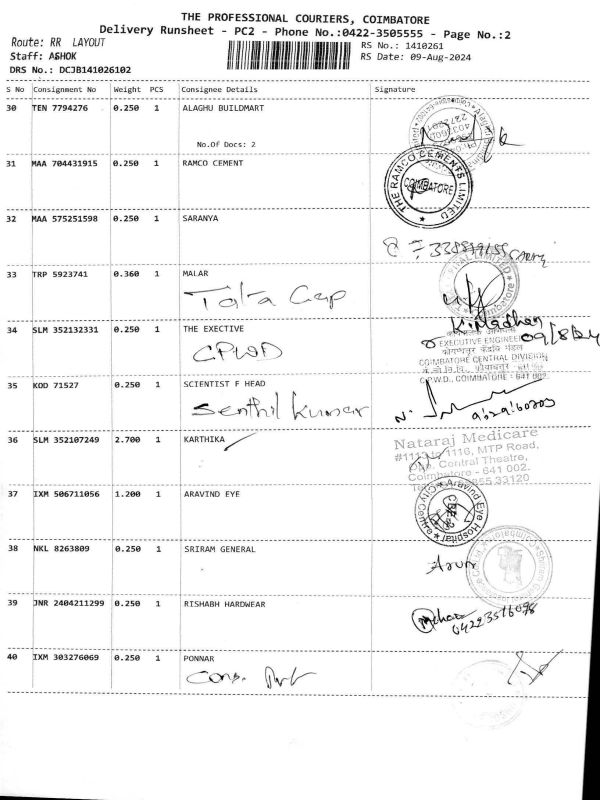 THE PROFESSIONAL COURIERS, COIMBATORE
Delivery Runsheet - PC2 - Phone No.:0422-3505555 - Page No.:2
Route: RR LAYOUT
RS No.: 1410261
Staff: ASHOK
RS Date: 09-Aug-2024
DRS No.: DCJB141026102
S No Consignment No Weight PCS Consignee Details Signature
30 TEN 7794276 0.250 1 ALAGHU BUILDMART
No.Of Docs: 2
31 MAA 704431915 0.250 1 RAMCO CEMENT
THE RAMCO CEMENTS LIMITED
COIMBATORE
32 MAA 575251598 0.250 1 SARANYA
33 TRP 5923741 0.360 1 MALAR
Tata Cap
34 SLM 352132331 0.250 1 THE EXECTIVE
CPWD
K. Madhan
09/8/24
EXECUTIVE ENGINEER
COIMBATORE CENTRAL DIVISION
C.P.W.D., COIMBATORE - 641 002.
35 KOD 71527 0.250 1 SCIENTIST F HEAD
Senthil Kumar
36 SLM 352107249 2.700 1 KARTHIKA
Nataraj Medicare
#1113 to 1116, MTP Road,
Opp. Central Theatre,
Coimbatore - 641 002.
37 IXM 506711056 1.200 1 ARAVIND EYE
Aravind Eye Hospital
City Centre
38 NKL 8263809 0.250 1 SRIRAM GENERAL
Arun
39 JNR 2404211299 0.250 1 RISHABH HARDWEAR
40 IXM 303276069 0.250 1 PONNAR